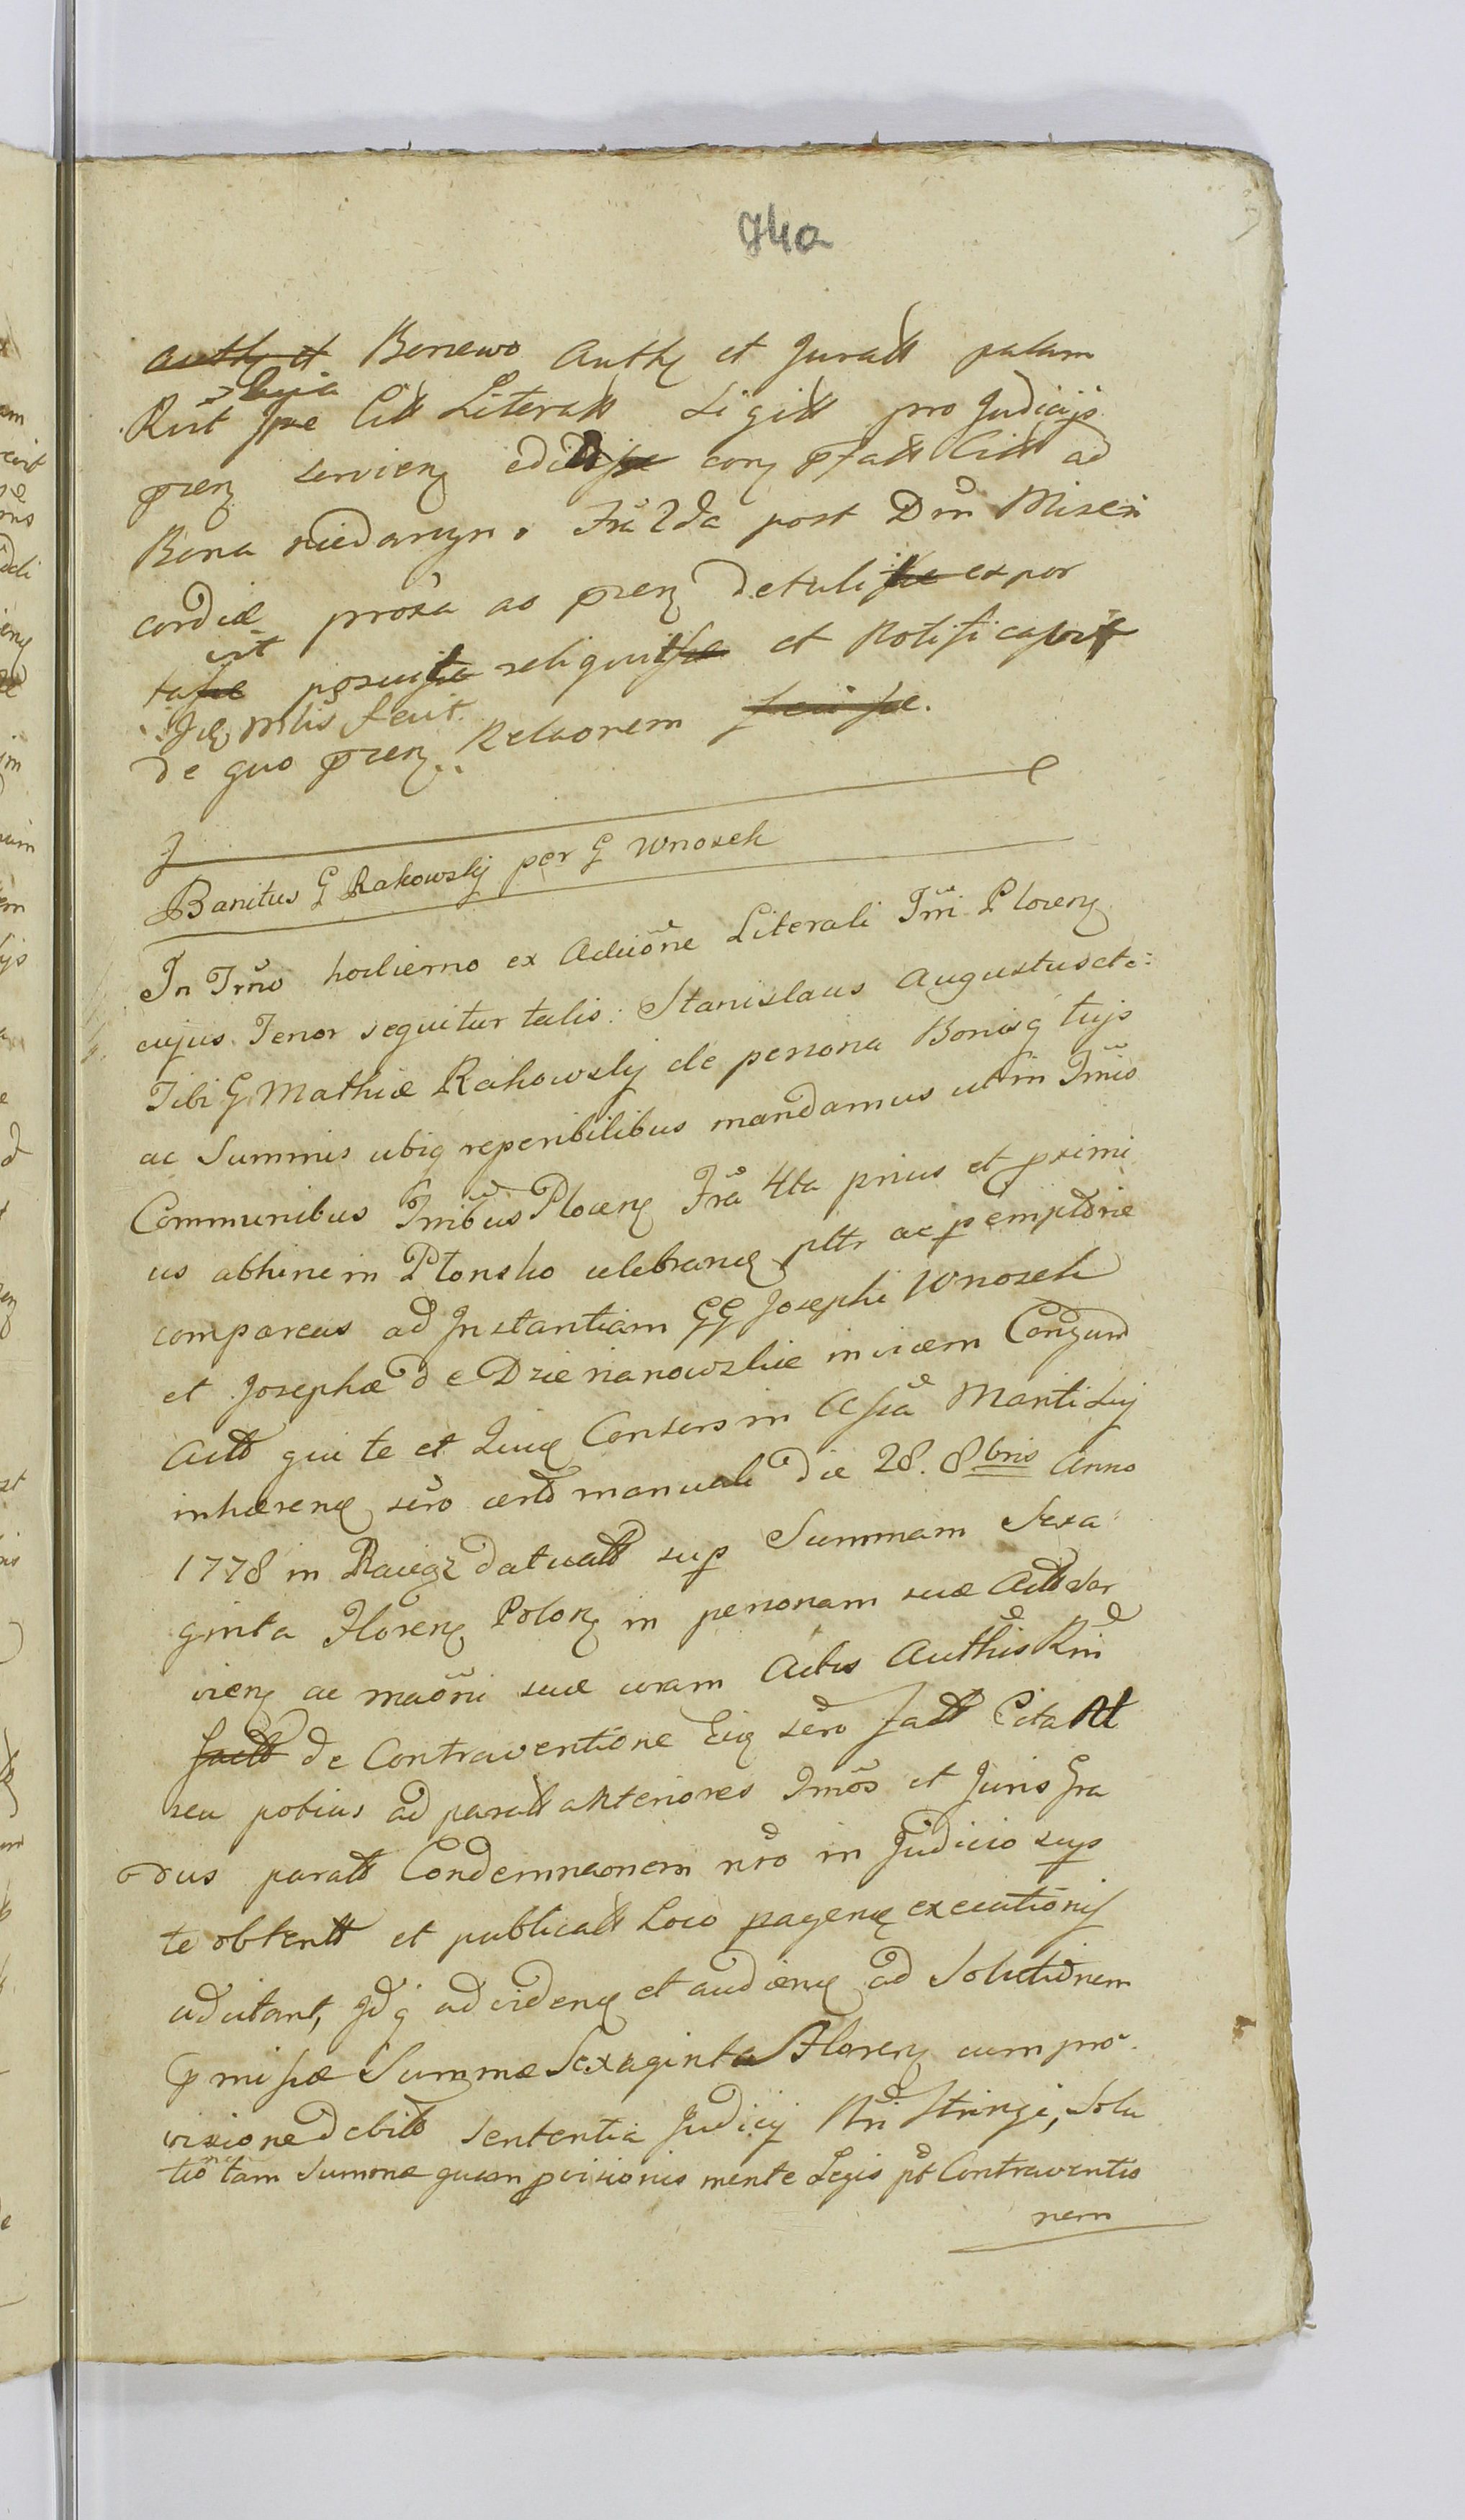 94a
auth et Benewo Auth et Juratt palam
Rlit Ipse Citt Literatt Sigitt pro Judicijs
pnen servien edidisse cony pfatt Citt ad
Bona niedarzyn. Fra 2da post Dm Miseri
cordiæ proxa ao pnen detulisse expor
tasse posuisse reliquitsse et Notificavit
vit
Jdq Mlis fecit
de quo pnen Relaorem fecisse.
Banitus G Rakowskij per G Wnorek
In Trno hodierno ex Actione Literali Tmi Plocen
cujus Tenor sequitur talis: Stanislaus Augustus etc:
Tibi G Mathiæ Rakowskij de persona Bonisq tuis
ac Summis ubiq reperibilibus mandamus ut in Tmis
Communibus Tmibus Plocen Fra 4ta prius et proximi
us abhinc in Płonsko celebrand pttr ac pemptorie
compareas ad Instantiam GG Josephi Wnorek
et Josephæ de Dzierzanowskie invicem Conjum
Actt qui te et Tuum Consors in Assia Mariti sui
inhæren sero certo manuali die 28. 8bris Anno
1778 in Raciąż datuatt sup Summam Sexa
ginta Floren Polon in personam suæ Actt ser
vien ac maoni suæ coram Actis Authis Rni
factt de Contraventione Eiq sero fatt Citatt
seu potius ad paratt anteriores Tmos et Juris Gra
dus paratt Condemnaonem nro in Judicio sup
te obtentt et publicatt Loco pagend executionis
adcitant, Jdq ad viden et audien ad Solutionem
pmissæ Summæ Sexaginta Floren cum pro
visione debitt sententia Judicij Nri Stringi, Solu
tio tam Summæ quam pvisionis mente Legis pt Contraventio
nem